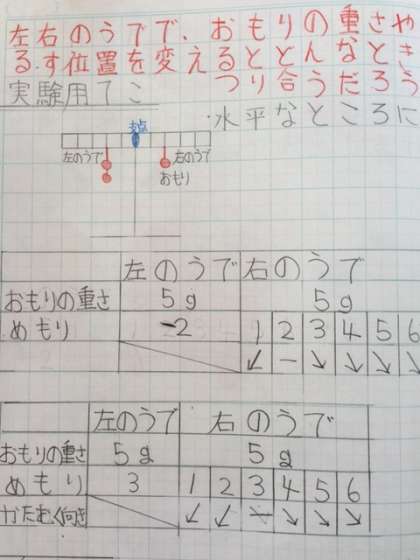 左右のうでで、おもりの重さや
るす位置を変えるとどんなとき
つり合うだろう
実験用てこ
・水平なところに
支点
左のうで
右のうで
おもり
左のうで 右のうで
おもりの重さ 5g 5g
めもり 2 1 2 3 4 5 6
↙ − ↘ ↘ ↘ ↘
左のうで 右のうで
おもりの重さ 5g 5g
めもり 3 1 2 3 4 5 6
かたむく向き ↙ ↙ − ↘ ↘ ↘